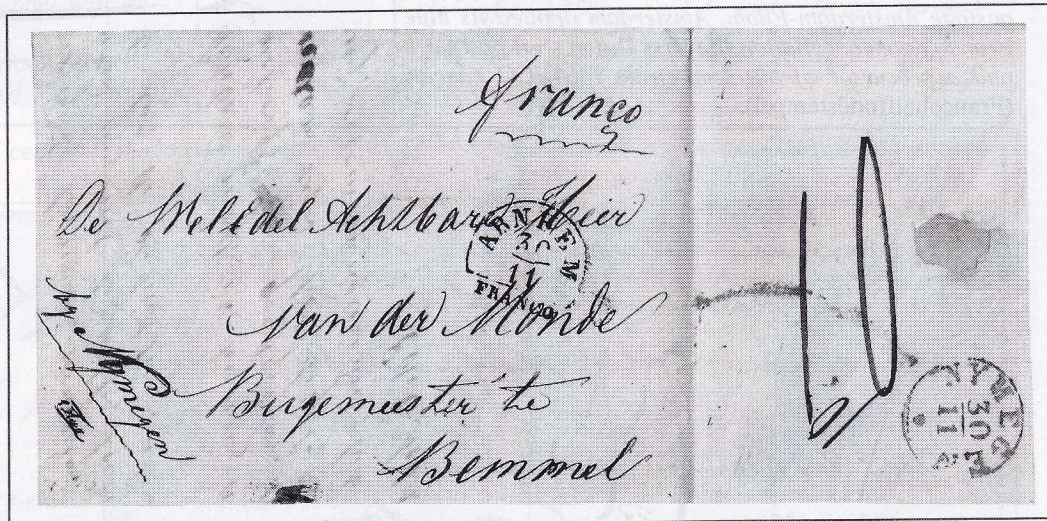 franco
De WelEdel Achtbare Heer
ARNHEM
30
11
FRANCO
van der Monde
Burgemeester te
Bemmel
Nymegen
30
11